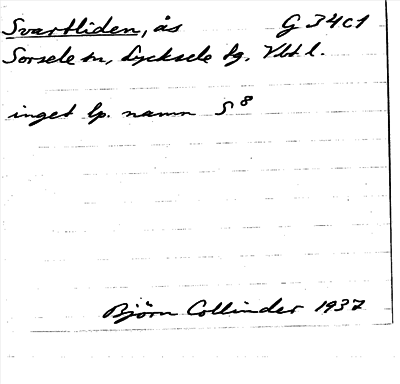 Svartliden, ås G 34c1
Sorsele sn, Lycksele tg. Vbt l.
inget lp. namn S 8
Björn Collinder 1937